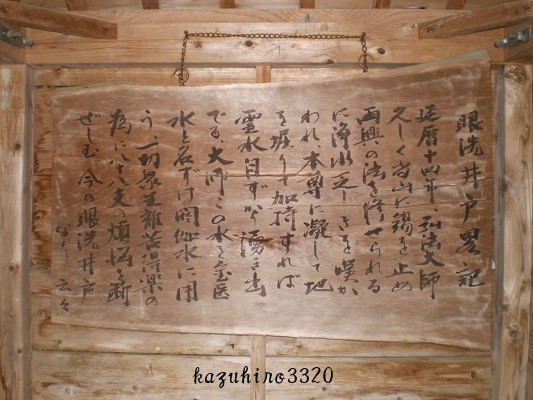 眼洗井戸畧記
延暦十四年、弘法大師
久しく当山に錫を止め
両興の法を修せられる
に浄水乏しきを嘆か
われ、本尊に凝して地
を堀りて加持すれば
霊水自ずから湧き出
でる大師この水を宝医
水と名ずけ閼伽水に用
う、一切衆生離苦得楽の
為に八十八支の煩悩を断
ぜしむ今の眼洗井戸
なり 云々
kazuhiro3320